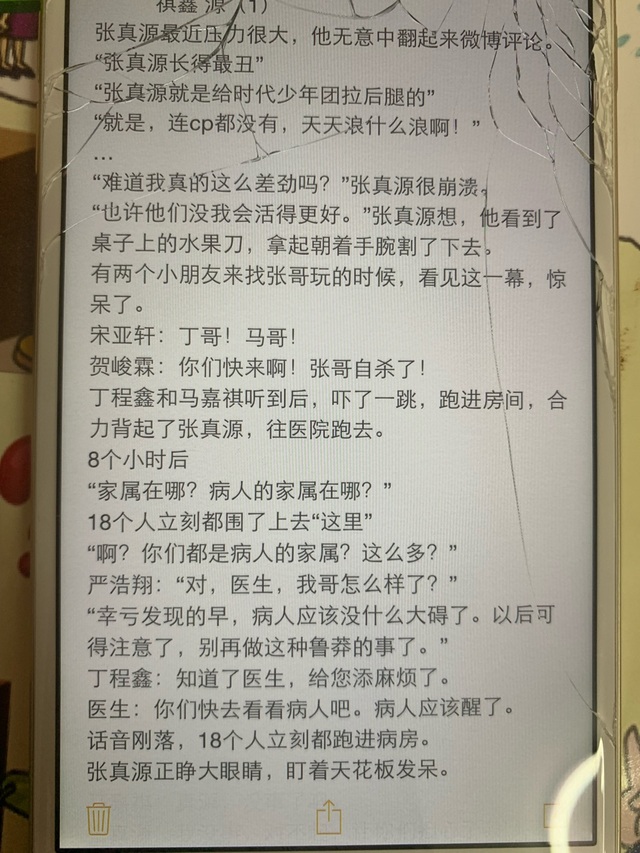 祺鑫 源（1）
张真源最近压力很大，他无意中翻起来微博评论。
“张真源长得最丑”
“张真源就是给时代少年团拉后腿的”
“就是，连cp都没有，天天浪什么浪啊！”
…
“难道我真的这么差劲吗？”张真源很崩溃。
“也许他们没我会活得更好。”张真源想，他看到了
桌子上的水果刀，拿起朝着手腕割了下去。
有两个小朋友来找张哥玩的时候，看见这一幕，惊
呆了。
宋亚轩：丁哥！马哥！
贺峻霖：你们快来啊！张哥自杀了！
丁程鑫和马嘉祺听到后，吓了一跳，跑进房间，合
力背起了张真源，往医院跑去。
8个小时后
“家属在哪？病人的家属在哪？”
18个人立刻都围了上去“这里”
“啊？你们都是病人的家属？这么多？”
严浩翔：“对，医生，我哥怎么样了？”
“幸亏发现的早，病人应该没什么大碍了。以后可
得注意了，别再做这种鲁莽的事了。”
丁程鑫：知道了医生，给您添麻烦了。
医生：你们快去看看病人吧。病人应该醒了。
话音刚落，18个人立刻都跑进病房。
张真源正睁大眼睛，盯着天花板发呆。